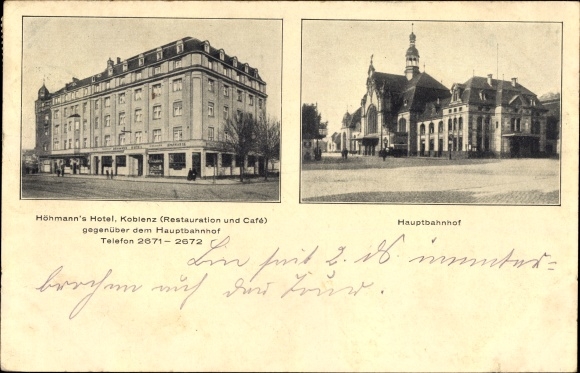 Höhmann's Hotel, Koblenz (Restauration und Café)
gegenüber dem Hauptbahnhof
Telefon 2671 – 2672
Hauptbahnhof
Bin seit 2. ds ununter-
brochen auf der Tour.